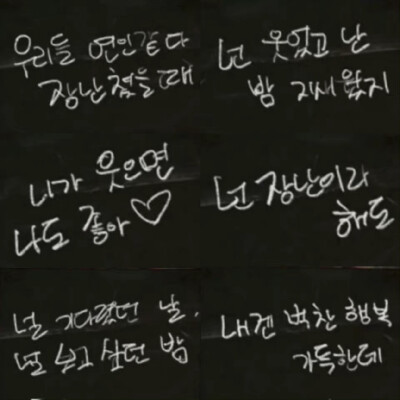 우리들 연인같다
장난쳤을때
넌 웃었고 난
밤 지새웠지
니가 웃으면
나도 좋아♡
넌 장난이라
해도
널 기다렸던 날,
널 보고 싶던 밤
내겐 벅찬 행복
가득한데